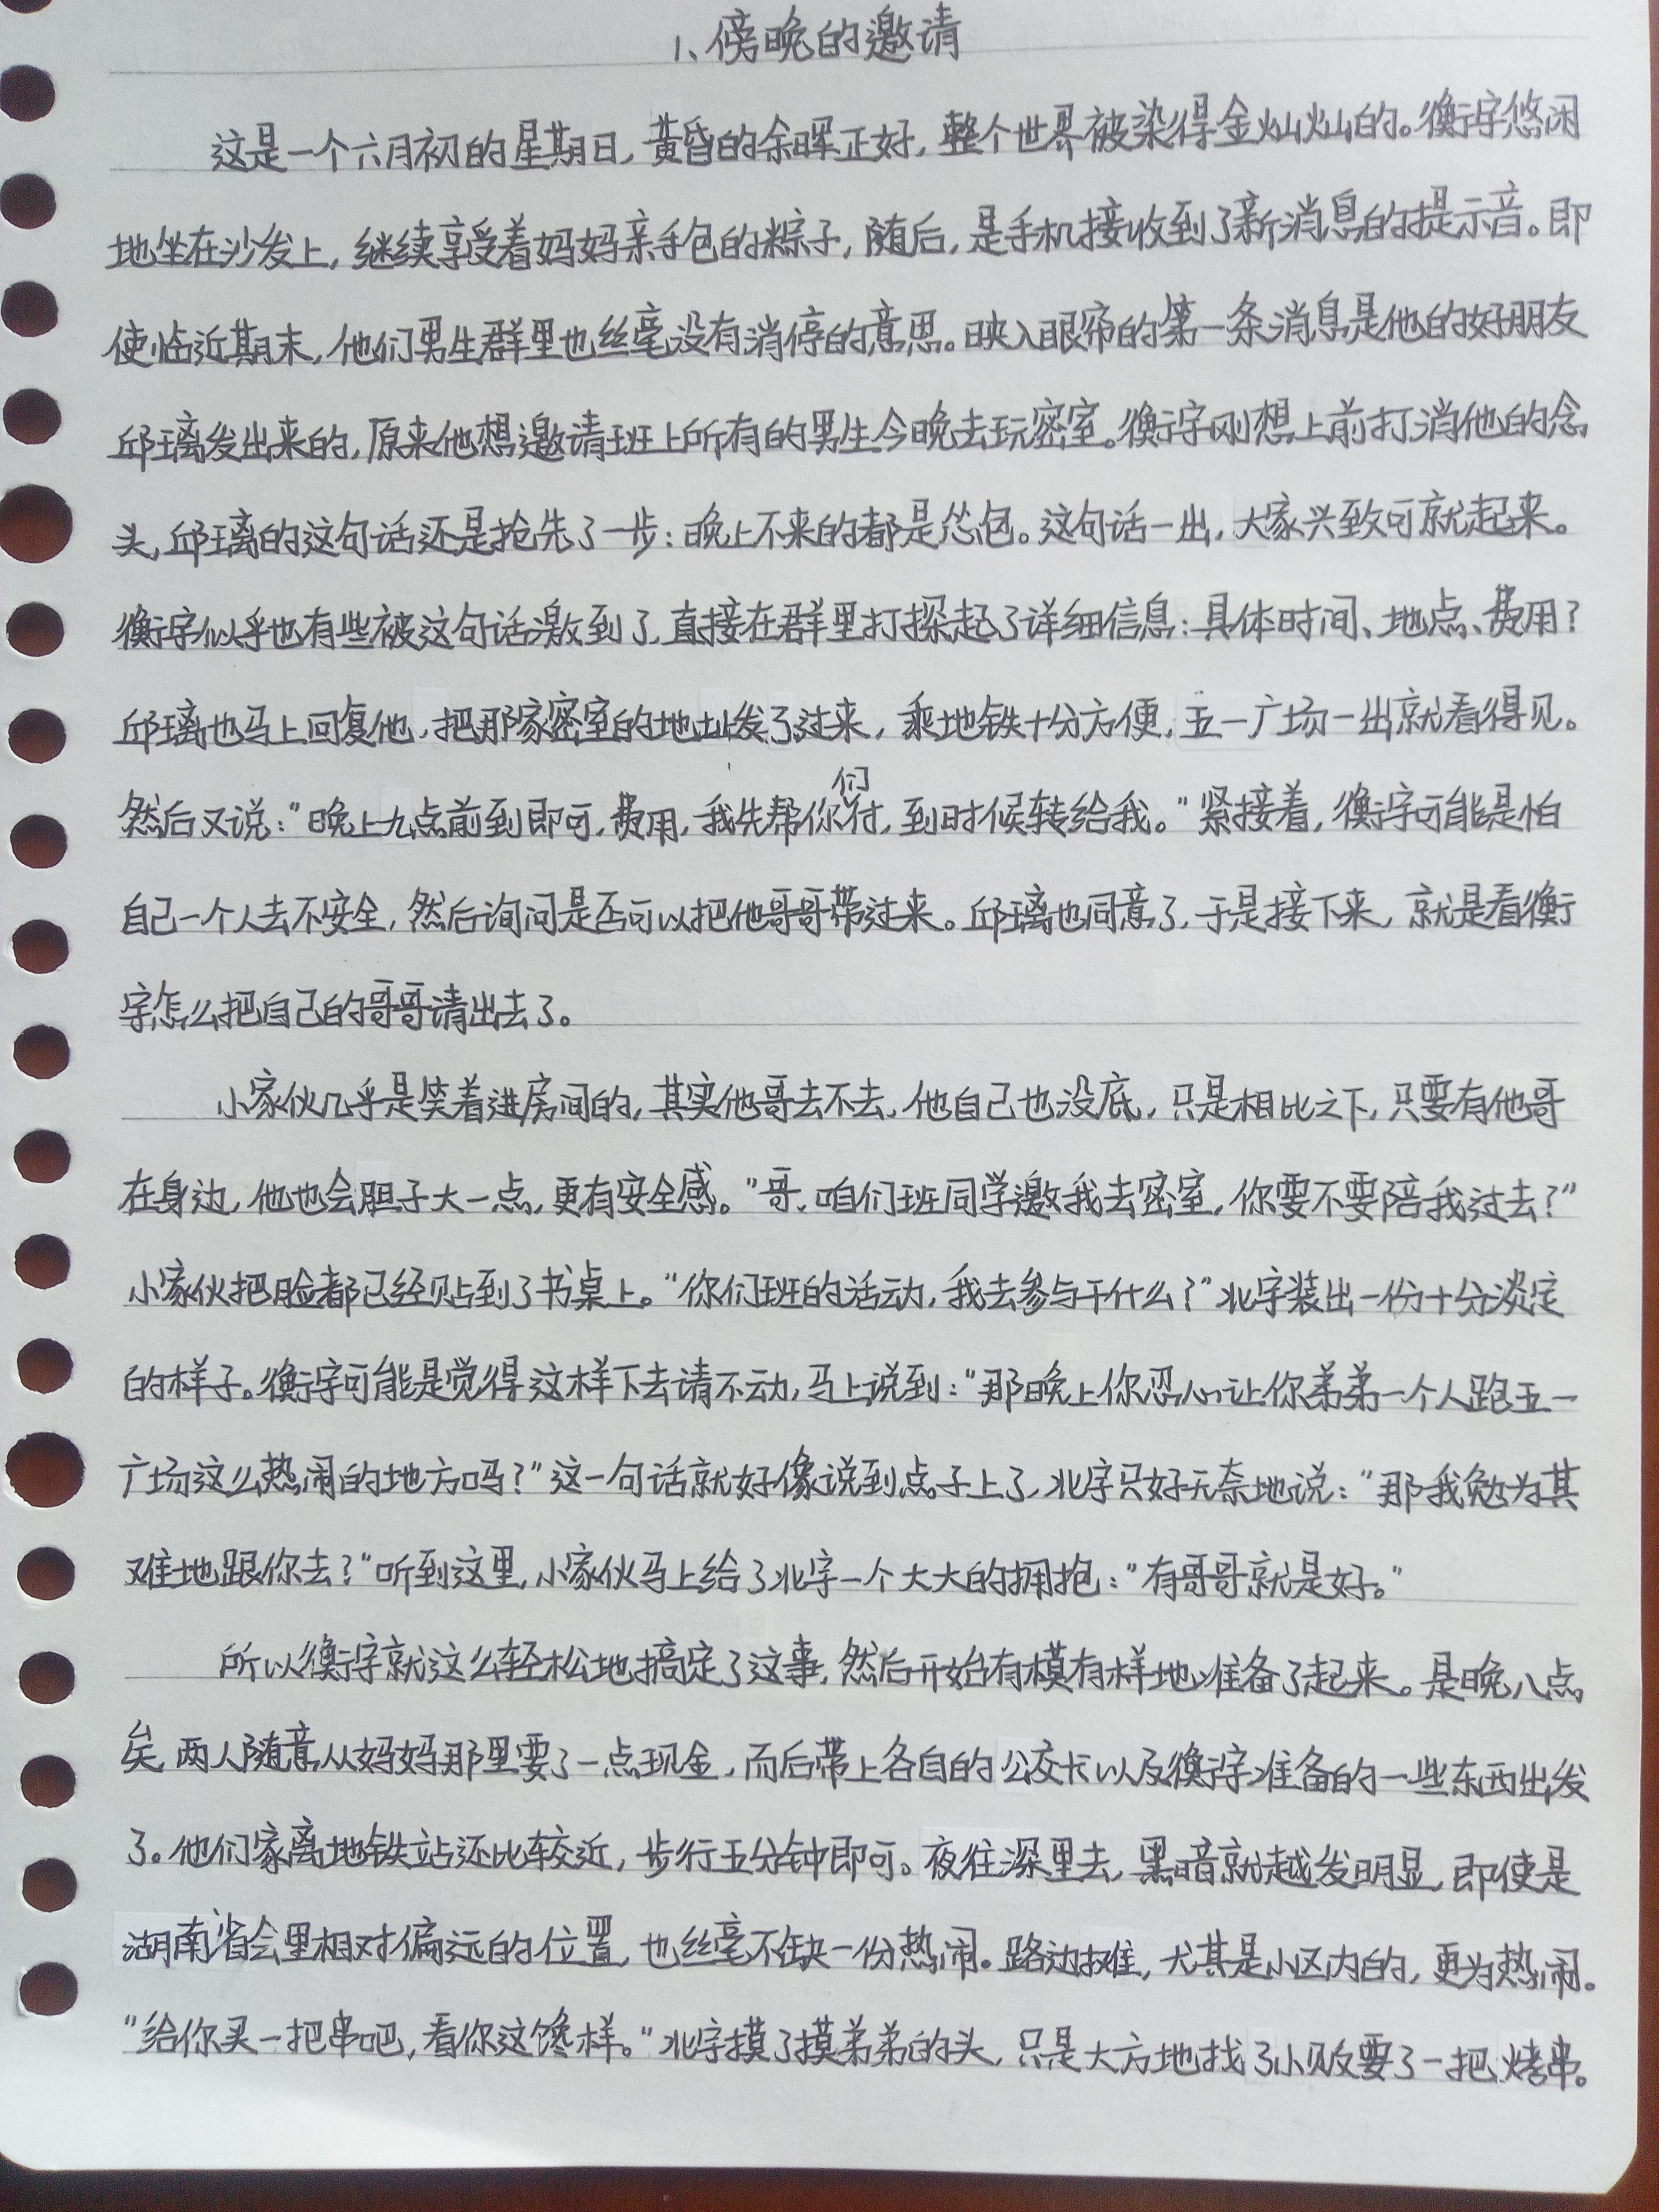 1、傍晚的邀请
这是一个六月初的星期日，黄昏的余晖正好，整个世界被染得金灿灿的。衡宇悠闲
地坐在沙发上，继续享受着妈妈亲手包的粽子，随后，是手机接收到了新消息的提示音。即
使临近期末，他们男生群里也丝毫没有消停的意思。映入眼帘的第一条消息是他的好朋友
邱璃发出来的，原来他想邀请班上所有的男生今晚去玩密室。衡宇刚想上前打消他的念
头，邱璃的这句话还是抢先了一步：晚上不来的都是怂包。这句话一出，大家兴致可就起来。
衡宇似乎也有些被这句话激到了，直接在群里打探起了详细信息：具体时间、地点、费用？
邱璃也马上回复他，把那家密室的地址发了过来，乘地铁十分方便，五一广场一出就看得见。
然后又说：“晚上九点前到即可，费用，我先帮你们付，到时候转给我。”紧接着，衡宇可能是怕
自己一个人去不安全，然后询问是否可以把他哥哥带过来。邱璃也同意了，于是接下来，就是看衡
宇怎么把自己的哥哥请出去了。
小家伙几乎是笑着进房间的，其实他哥去不去，他自己也没底，只是相比之下，只要有他哥
在身边，他也会胆子大一点，更有安全感。“哥，咱们班同学邀我去密室，你要不要陪我过去？”
小家伙把脸都已经贴到了书桌上。“你们班的活动，我去参与干什么？”北宇装出一份十分淡定
的样子。衡宇可能是觉得这样下去请不动，马上说到：“那晚上你忍心让你弟弟一个人跑五一
广场这么热闹的地方吗？”这一句话就好像说到点子上了，北宇只好无奈地说：“那我勉为其
难地跟你去？”听到这里，小家伙马上给了北宇一个大大的拥抱：“有哥哥就是好。”
所以衡宇就这么轻松地搞定了这事，然后开始有模有样地准备了起来。是晚八点
矣，两人随意从妈妈那里要了一点现金，而后带上各自的公交卡以及衡宇准备的一些东西出发
了。他们家离地铁站还比较近，步行五分钟即可。夜往深里去，黑暗就越发明显，即使是
湖南省会里相对偏远的位置，也丝毫不缺一份热闹。路边摊，尤其是小区内的，更为热闹。
“给你买一把串吧，看你这馋样。”北宇摸了摸弟弟的头，只是大方地找了小贩要了一把烤串。